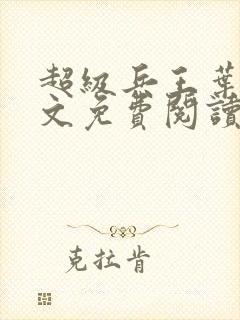 超级兵王葉
文免費閱讀
克拉肯